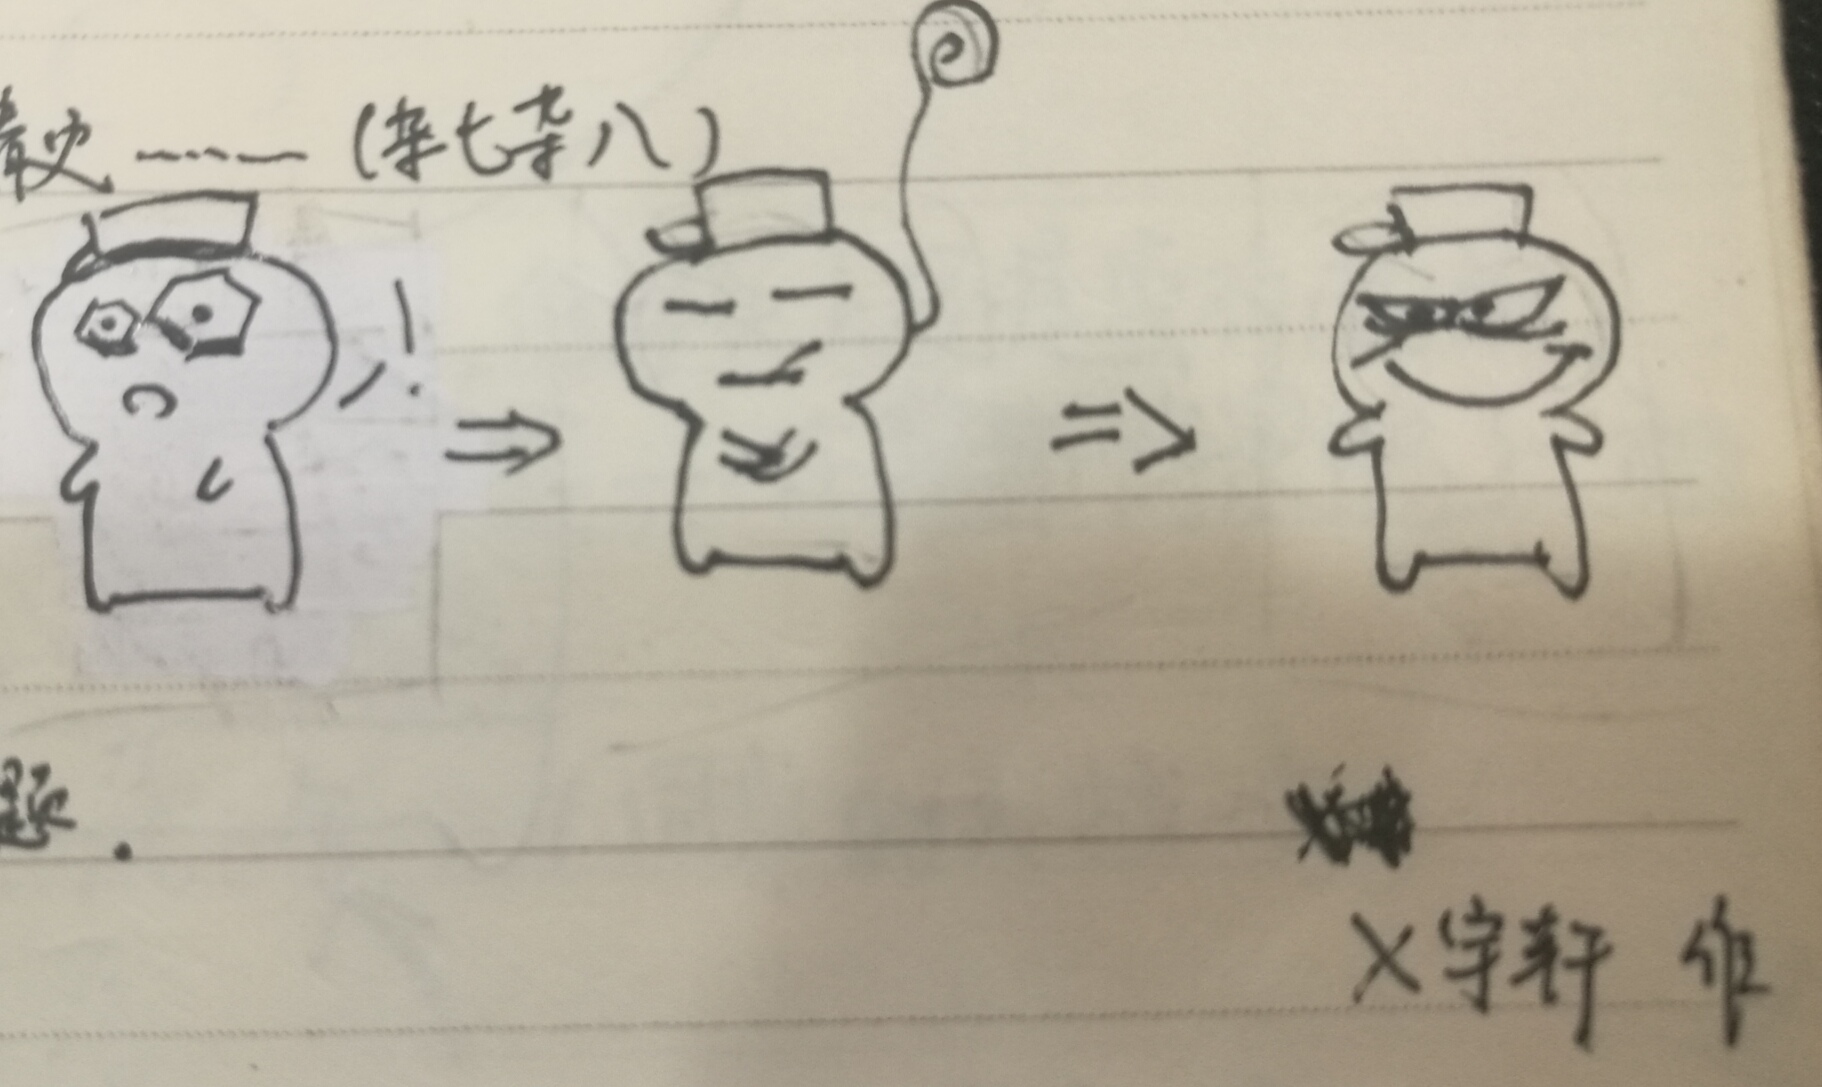 ……(杂七杂八)
题.
X宇轩 作